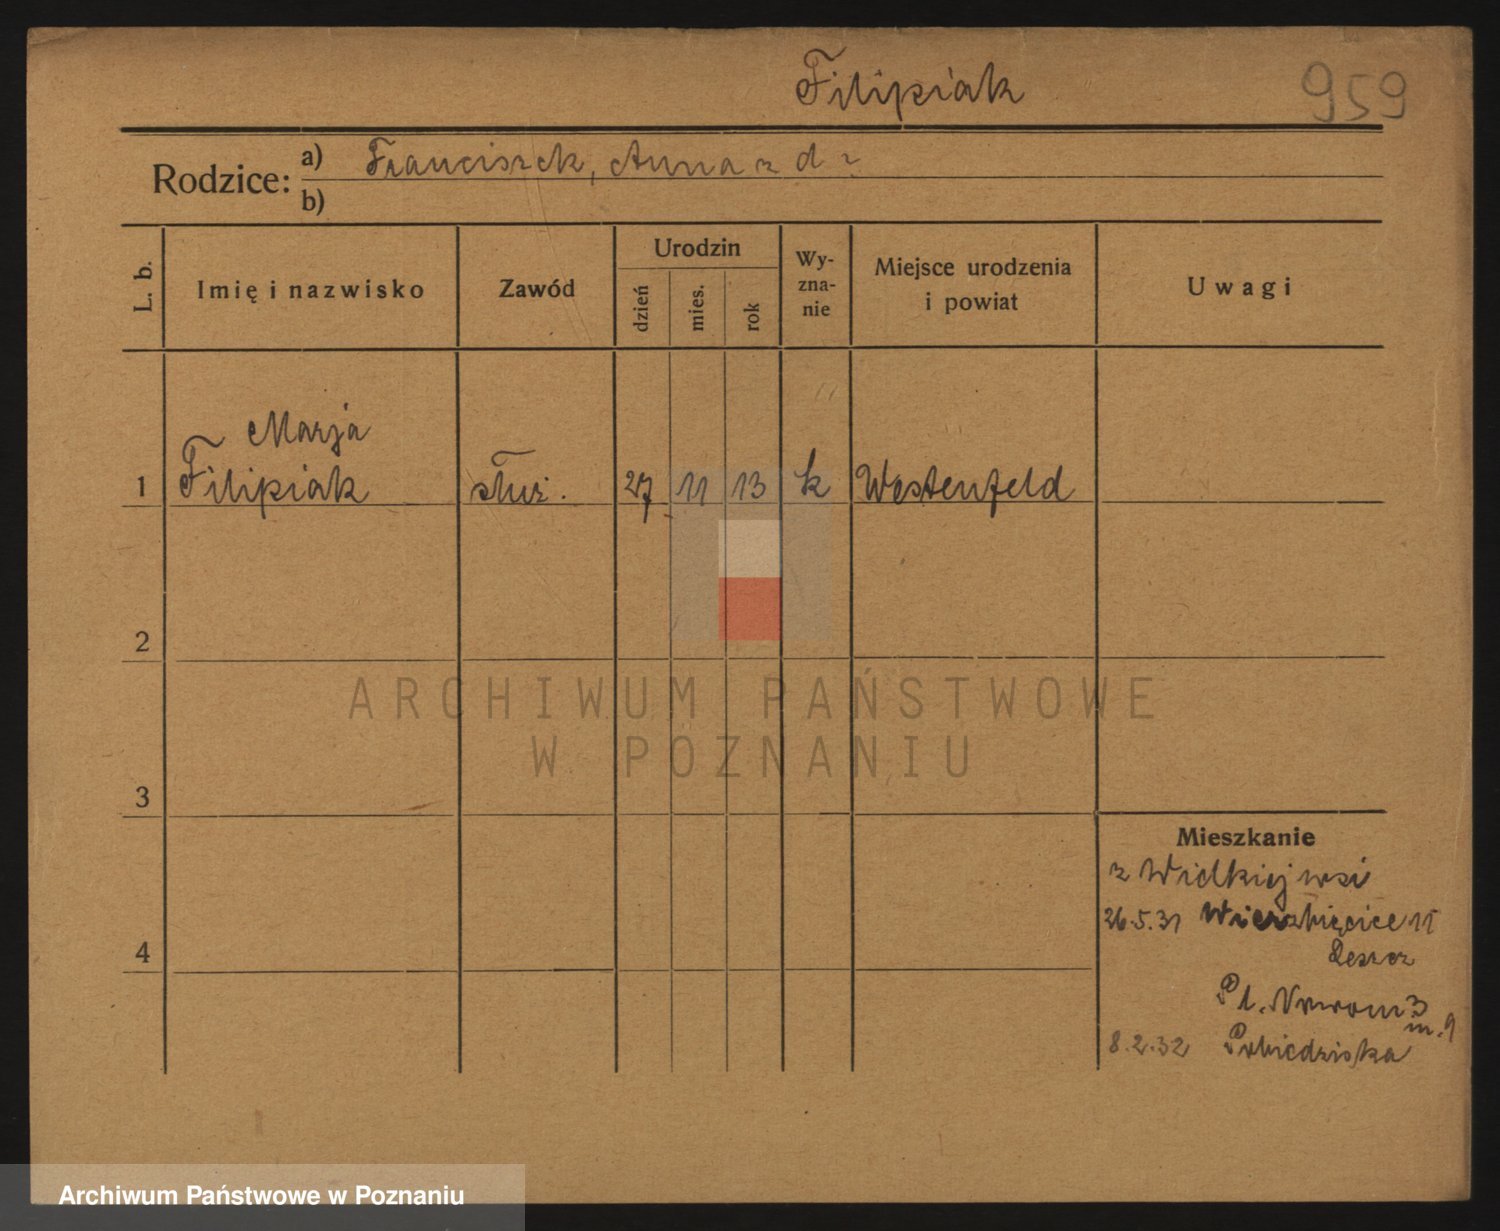 Filipiak
959
Rodzice:
a) Franciszek, Anna z d ?
b)
L. b.
Imię i nazwisko
Zawód
Urodzin
dzień
mies.
rok
Wy-
zna-
nie
Miejsce urodzenia
i powiat
Uwagi
Marja
1 Filipiak służ. 27 11 13 k Westenfeld
2
3
4
Mieszkanie
z Wielkiej wsi
26.5.31 Wierzbięcice 11
Pl. Nowom 3
m. 9
8.2.32 Pobiedziska
ARCHIWUM PAŃSTWOWE
W POZNANIU
Archiwum Państwowe w Poznaniu